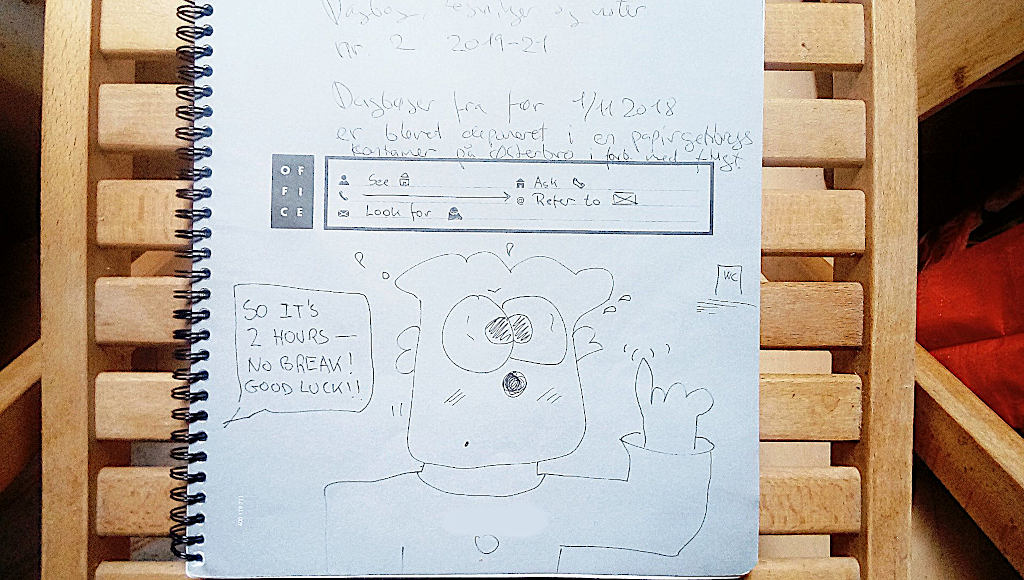 Dagbøger, tegninger og noter
nr. 2 2019-21
Dagbøger fra før 1/11 2018
er blevet deponeret i en papirgenbrugs
kontainer på Østerbro i forb. med flugt.
OF
FI
CE
See
Ask
@ Refer to
Look for
WC
SO IT'S
2 HOURS —
NO BREAK!
GOOD LUCK!!